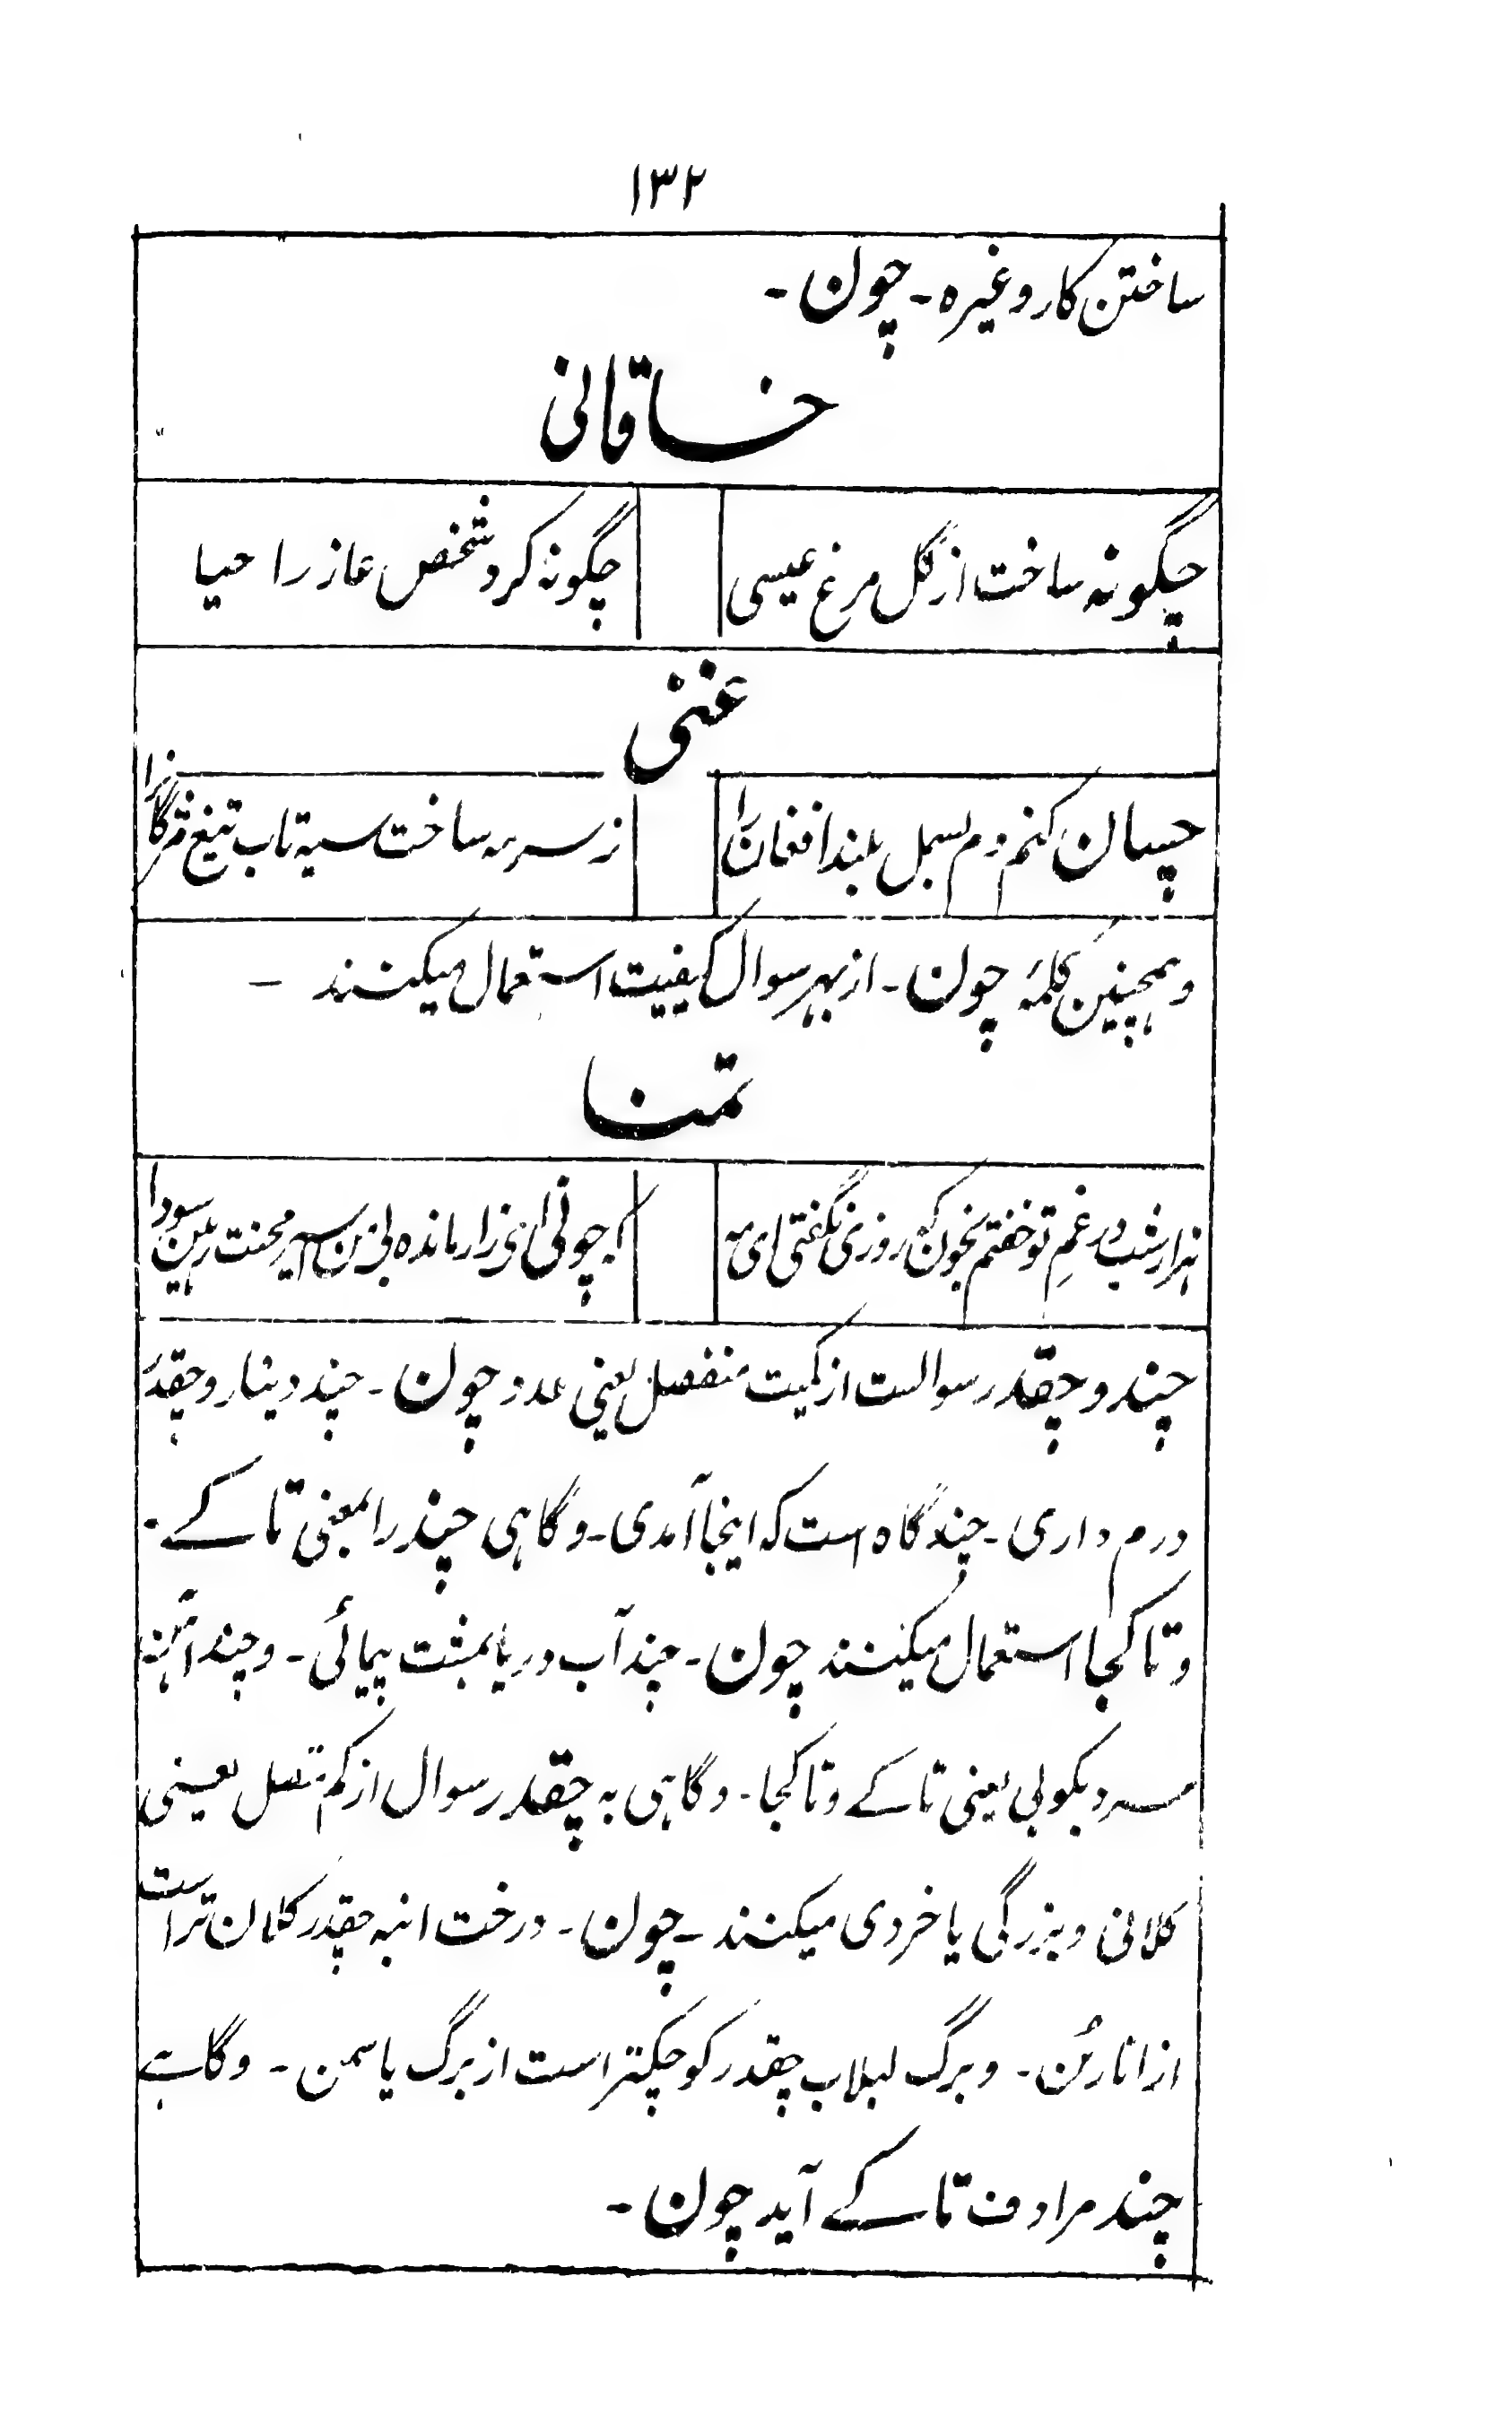 ۱۳۲
ساختن کار وغیره - چون -
خاقانی
چگونه ساخت از گل مرغ عیسی
چگونه کرد شخص عازر احیا
غنی
چسان کنم دم بسمل بلند افغان را
ز سرمه ساخت سیه تاب تیغ مژگان را
وهمچنین کلمهٔ چون - از بهر سوال کیفیت استعمال میکنند -
تمنا
هزار شب در غمِ تو خفتم بخون که روزی نگفتی ای مه
که چونی ای زار مانده بی من اسیر محنت رهین سودا
چند و چقدر سوالست از کمیت منفصل یعنی عدد چون - چند دینار و چقدر
درم داری - چند گاه است که اینجا آمدی - و گاهی چند را بمعنی تا کے -
و تا کجا استعمال میکنند چون - چند آب دریا بمشت پیمائی - و چند آهن
سرد بکوبی یعنی تا کے و تا کجا - و گاهی به چقدر سوال از کم متصل یعنی
کلانی و بزرگی یا خردی میکنند - چون - درخت انبه چقدر کلان تر است
از انار بُن - و برگ لبلاب چقدر کوچکتر است از برگ یاسمن - و گاہے
چند مرادف تا کے آید چون -